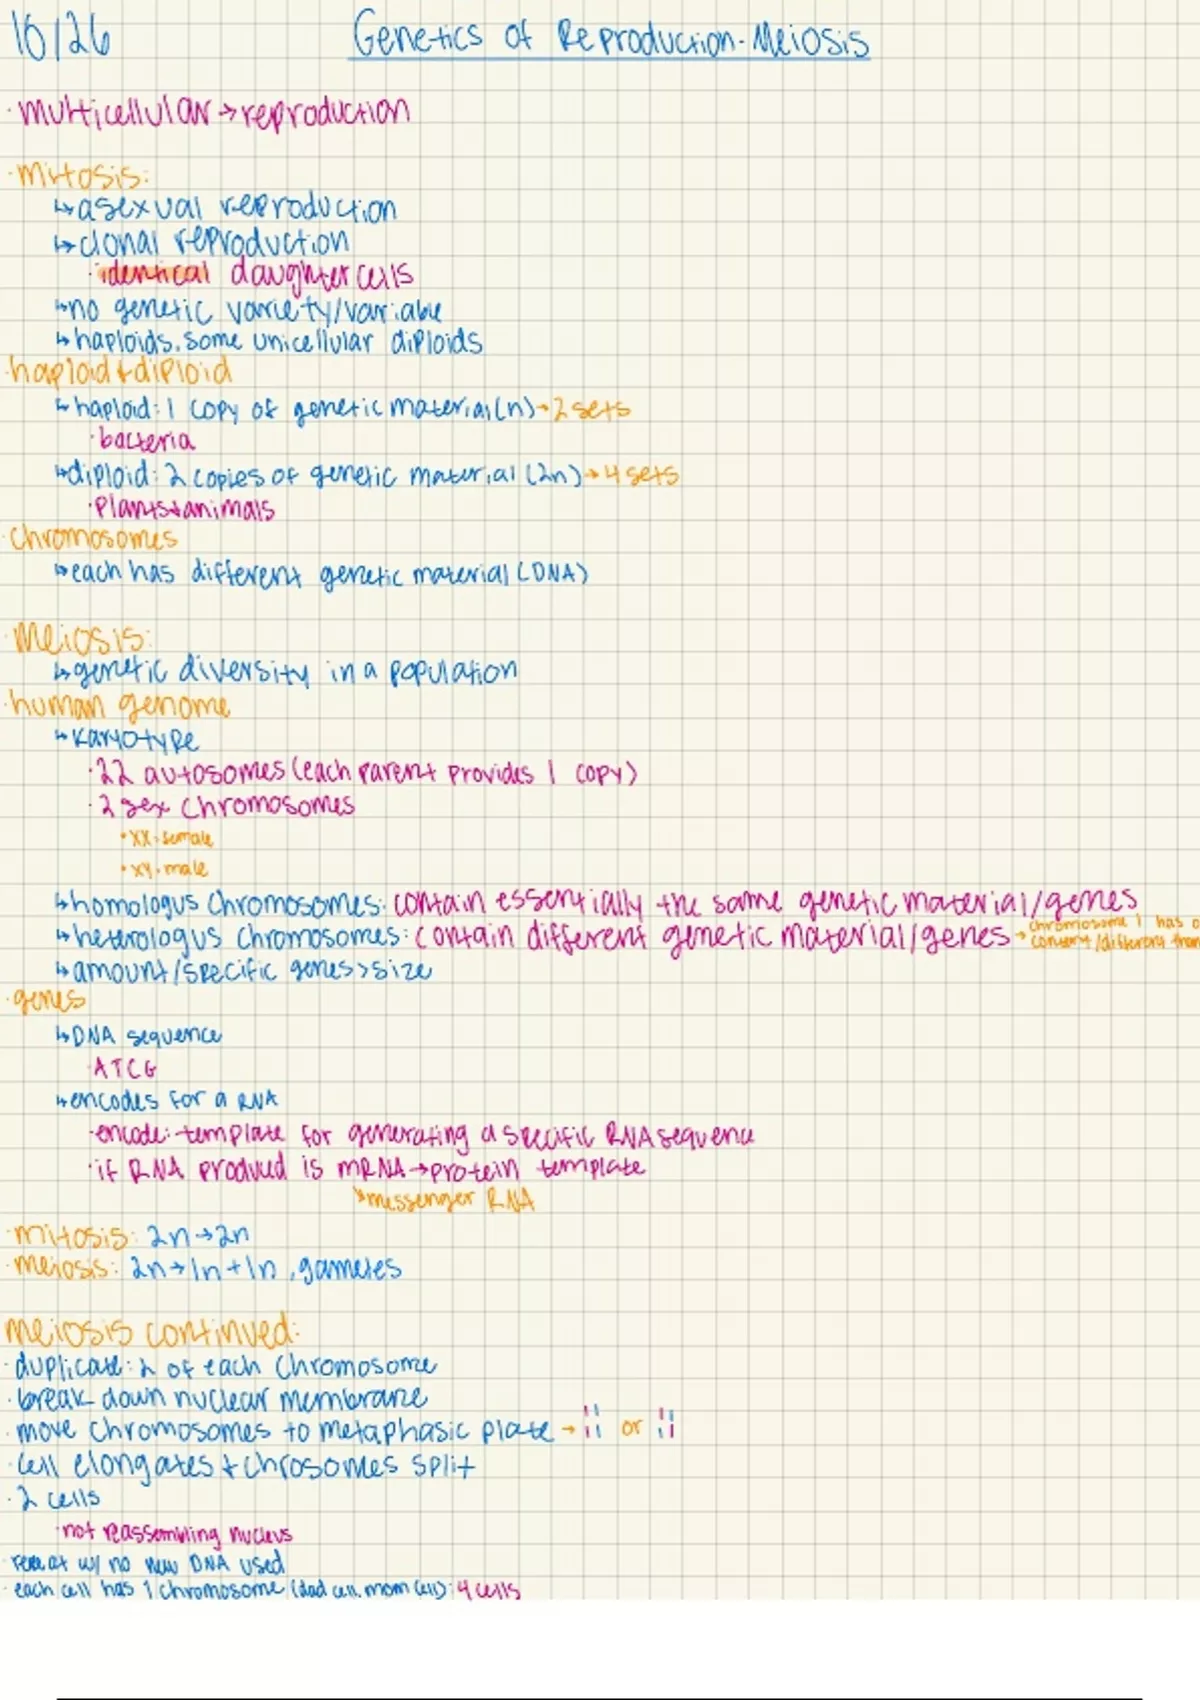 10/26
Genetics of Reproduction-Meiosis
· multicellular → reproduction
· mitosis:
↳ asexual reproduction
↳ clonal reproduction
· identical daughter cells
↳ no genetic variety/variable
↳ haploids, some unicellular diploids
· haploid + diploid
↳ haploid: 1 copy of genetic material (n) → 2 sets
· bacteria
↳ diploid: 2 copies of genetic material (2n) → 4 sets
· Plants + animals
· Chromosomes
↳ each has different genetic material (DNA)
· Meiosis:
↳ genetic diversity in a population
· human genome
↳ Karyotype
· 22 autosomes (each parent provides 1 copy)
· 2 sex chromosomes
• XX: female
• xy: male
↳ homologus chromosomes: contain essentially the same genetic material/genes
↳ heterologus chromosomes: contain different genetic material/genes → chromosome 1 has
↳ amount/specific genes > size
· genes
↳ DNA sequence
· ATCG
↳ encodes for a RNA
· encode: template for generating a specific RNA sequence
· if RNA produced is mRNA → protein template
↘ messenger RNA
· mitosis: 2n → 2n
· meiosis: 2n → 1n + 1n, gametes
meiosis continued:
· duplicate: 2 of each Chromosome
· break down nuclear membrane
· move chromosomes to metaphasic plate → or
· cell elongates + chrosomes split
· 2 cells
· not reassembling nucleus
· repeat w/ no new DNA used
· each cell has 1 chromosome (dad cell, mom cell): 4 cells